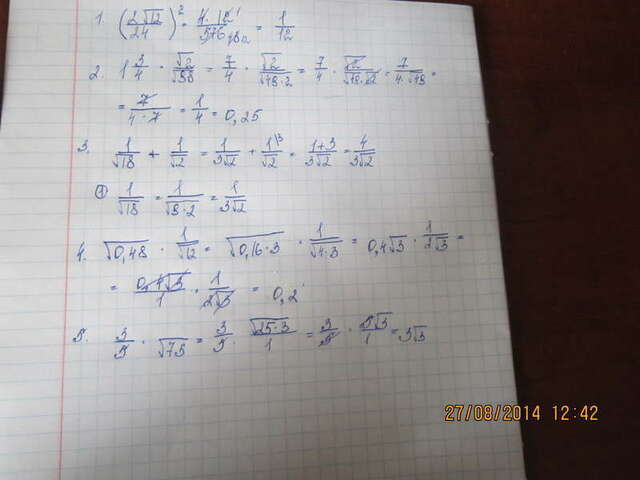 1. (2√12/24)² = 4·12/576 = 1/12
2. 1 3/4 · √2/√98 = 7/4 · √2/√49·2 = 7/4 · √2/√49·√2 = 7/4·√49 =
= 7/4·7 = 1/4 = 0,25
3. 1/√18 + 1/√2 = 1/3√2 + 1/√2 = 1+3/3√2 = 4/3√2
① 1/√18 = 1/√9·2 = 1/3√2
4. √0,48 · 1/√12 = √0,16·3 · 1/√4·3 = 0,4√3 · 1/2√3 =
= 0,4√3/1 · 1/2√3 = 0,2
5. 3/5 · √75 = 3/5 · √25·3/1 = 3/5 · 5√3/1 = 3√3
27/08/2014 12:42